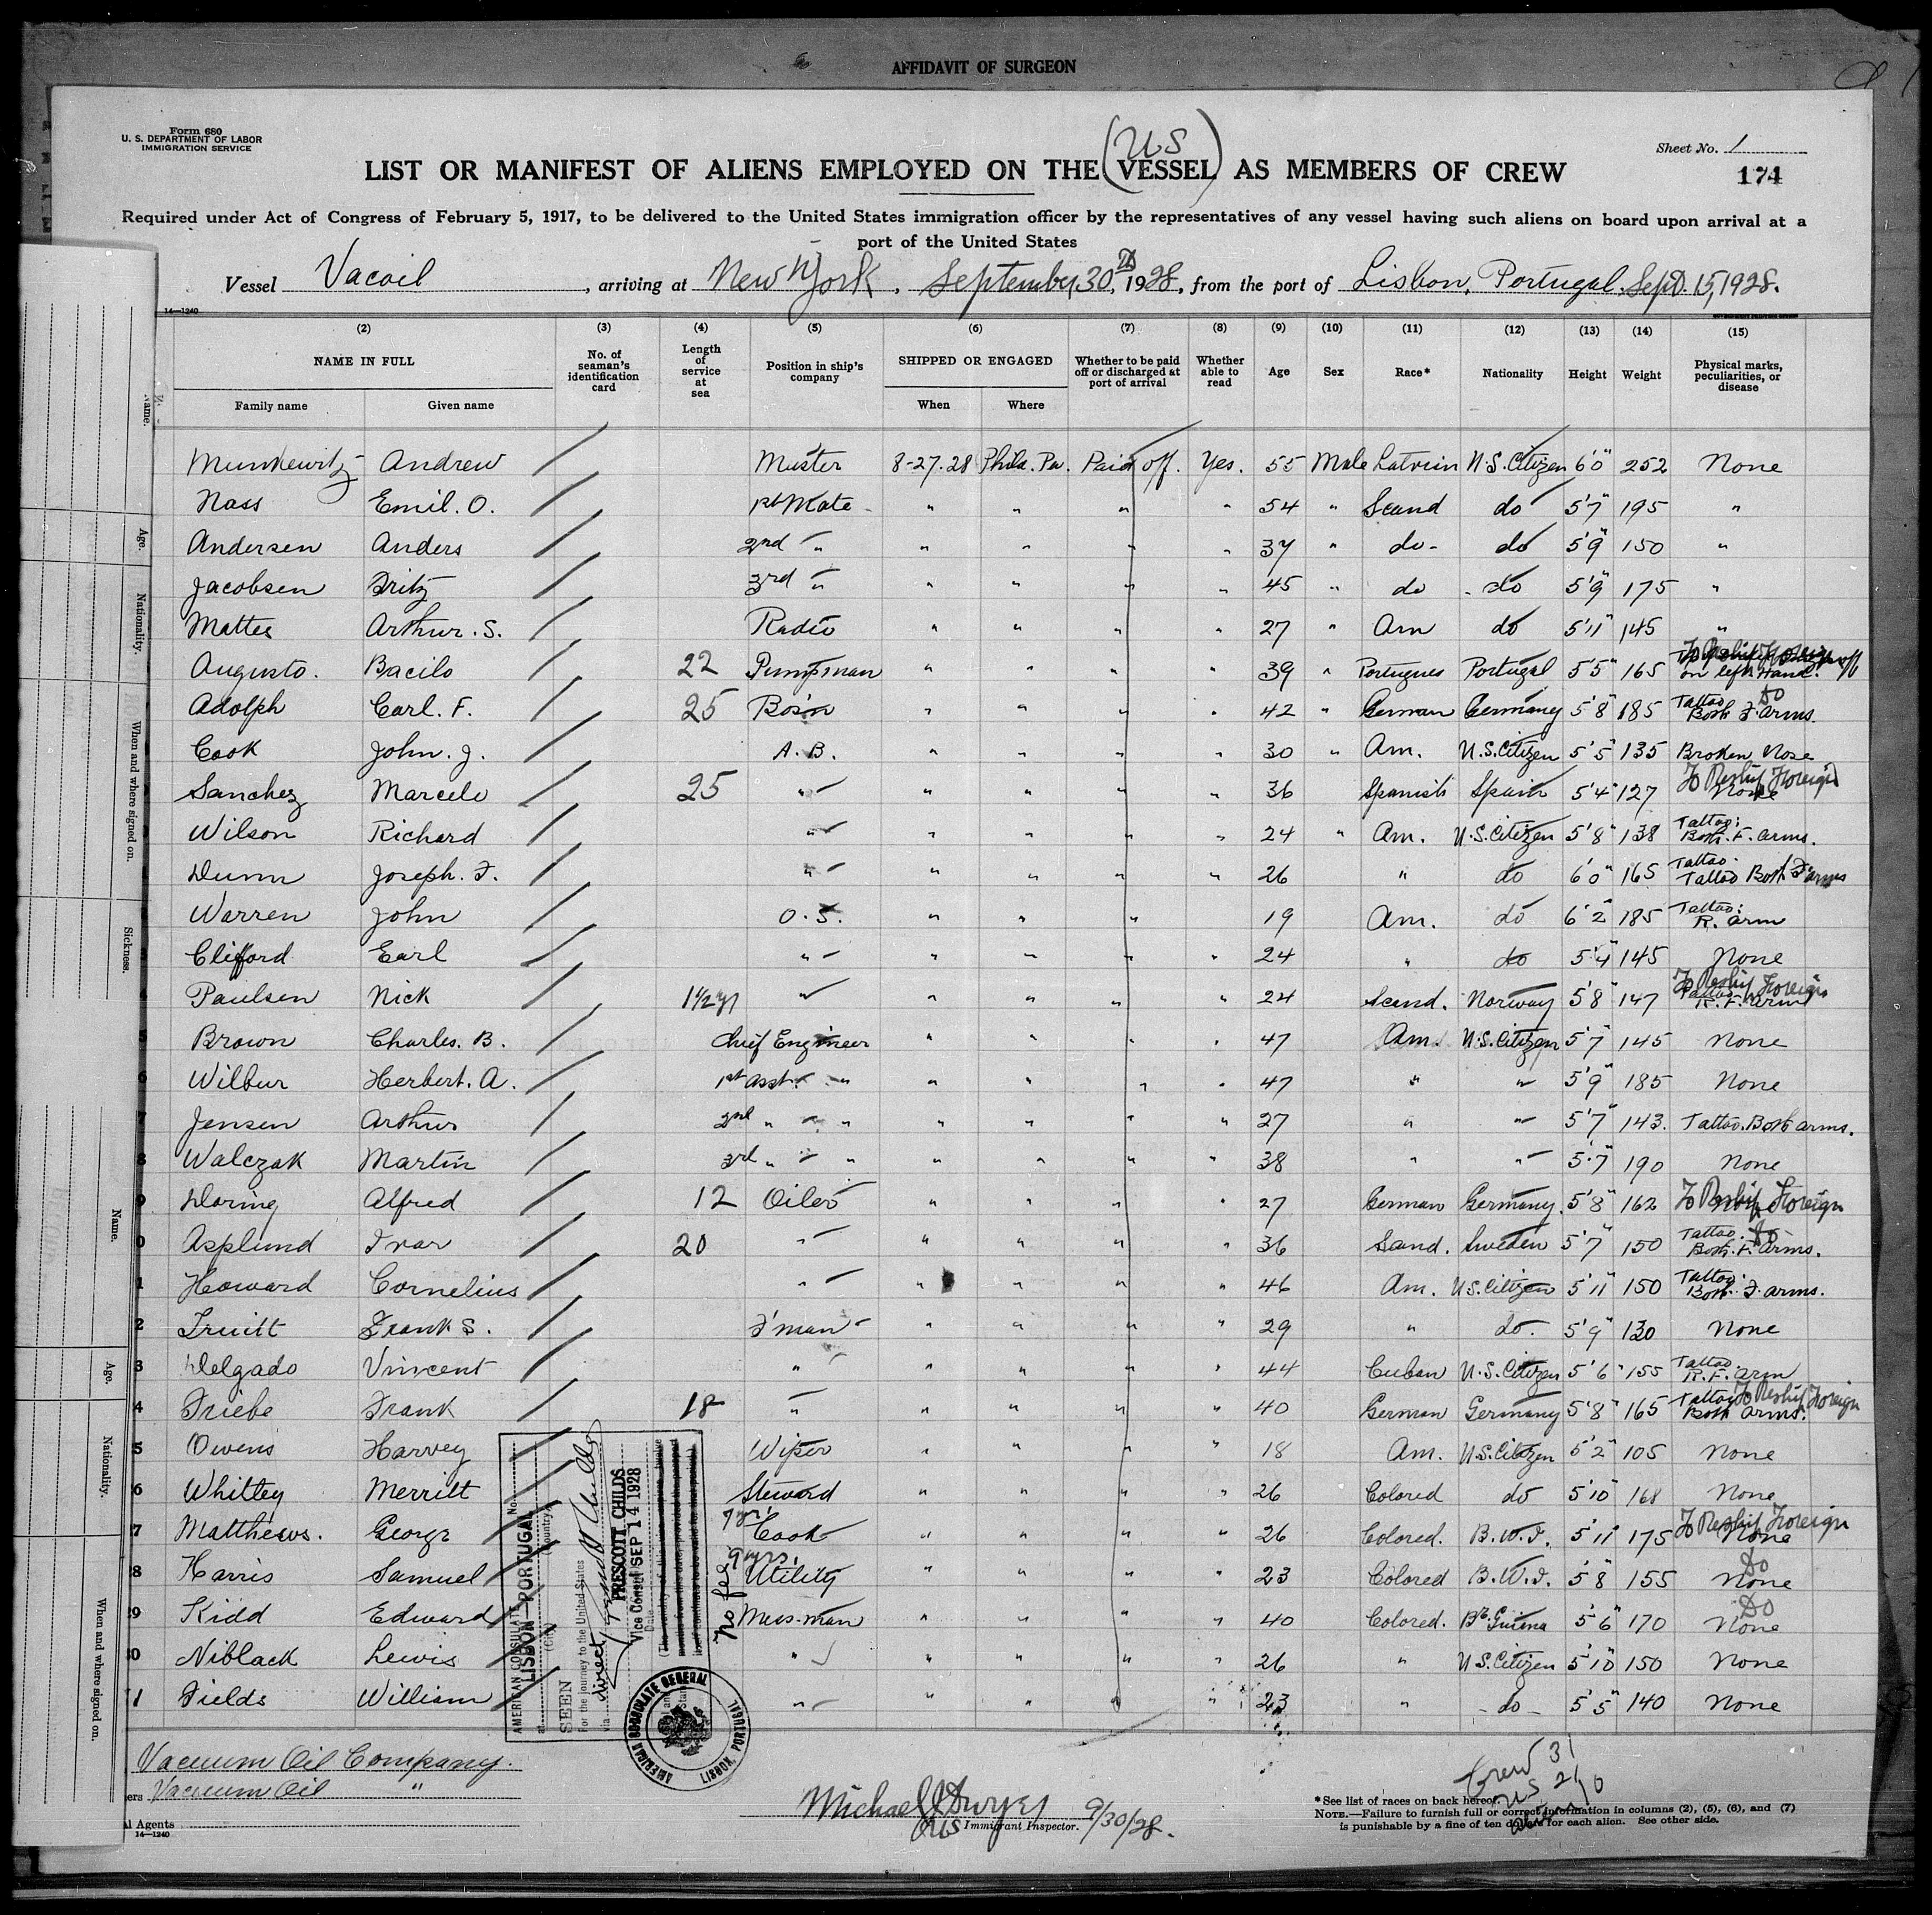 AFFIDAVIT OF SURGEON
Form 680
U. S. DEPARTMENT OF LABOR
IMMIGRATION SERVICE
Sheet No. 1
174
(US)
LIST OR MANIFEST OF ALIENS EMPLOYED ON THE VESSEL AS MEMBERS OF CREW
Required under Act of Congress of February 5, 1917, to be delivered to the United States immigration officer by the representatives of any vessel having such aliens on board upon arrival at a
port of the United States
Vessel Vacoil, arriving at New York, September 30, 1928, from the port of Lisbon, Portugal, Sept. 15, 1928.
14—1240
(2) (3) (4) (5) (6) (7) (8) (9) (10) (11) (12) (13) (14) (15)
NAME IN FULL No. of seaman's identification card Length of service at sea Position in ship's company SHIPPED OR ENGAGED Whether to be paid off or discharged at port of arrival Whether able to read Age Sex Race* Nationality Height Weight Physical marks, peculiarities, or disease
Family name Given name When Where
Munkewitz Andrew Master 8-27-28 Phila. Pa. Paid off. Yes. 55 Male Latvian U.S. Citizen 6'0" 252 None
Nass Emil. O. 1st Mate " " " " 54 " Scand do 5'7" 195 "
Andersen Anders 2nd " " " " " 37 " do- do 5'9" 150 "
Jacobsen Fritz 3rd " " " " " 45 " do do 5'9" 175 "
Mattes Arthur. S. Radio " " " " 27 " Am do 5'11" 145 "
Augusto. Bacilo 22 Pumpsman " " " " 39 " Portugues Portugal 5'5" 165 To Reship Foreign on left Hand.
Adolph Carl. F. 25 Bos'n " " " " 42 " German Germany 5'8" 185 Tattoo Both F. arms. Do
Cook John. J. A. B. " " " " 30 " Am. U.S. Citizen 5'5" 135 Broken Nose
Sanchez Marcelo 25 " " " " " 36 Spanish Spain 5'4" 127 To Reship Foreign None
Wilson Richard " " " " " 24 " Am. U.S. Citizen 5'8" 138 Tattoo: Both. F. arms.
Dunn Joseph. F. " " " " " 26 " do 6'0" 165 Tattoo. Tattoo Both F arms
Warren John O. S. " " " 19 Am. do 6'2" 185 Tattoo: R. arm
Clifford Earl " " " " " 24 " do 5'4" 145 None
Paulsen Nick 1 1/2 yr " " " " " 24 Scand. Norway 5'8" 147 To Reship Foreign Tattoo R. F. arm
Brown Charles. B. Chief Engineer " " " " 47 Am. U.S. Citizen 5'7" 145 None
Wilbur Herbert. A. 1st asst. " " " " " 47 " " 5'9" 185 None
Jensen Arthur 2nd " " " " " " 27 " " 5'7" 143. Tattoo. Both arms.
Walczak Martin 3rd " " " " " " 38 " " 5'7" 190 None
Doring Alfred 12 Oiler " " " " 27 German Germany. 5'8" 162 To Reship Foreign
Asplund Ivar 20 " " " " " 36 Sand. Sweden 5'7" 150 Tattoo. Both. F. Arms. Do
Howard Cornelius " " " " " 46 Am. U.S. Citizen 5'11" 150 Tattoo: Both. F. arms.
Truitt Frank S. F'man " " " " 29 " do. 5'9" 130 None
Delgado Vincent " " " " " 44 Cuban U.S. Citizen 5'6" 155 Tattoo. R. F. arm
Friebe Frank 18 " " " " " 40 German Germany 5'8" 165 Tattoo Both arms. To Reship Foreign
Owens Harvey Wiper " " " " 18 Am. U.S. Citizen 5'2" 105 None
Whitley Merritt Steward " " " " 26 Colored do 5'10" 168 None
Matthews. George 7 yrs Cook " " " " 26 Colored. B. W. I. 5'11" 175 To Reship Foreign None
Harris Samuel 9 yrs. Utility " " " " 23 Colored B. W. I. 5'8" 155 Do None
Kidd Edward Mess-man " " " " 40 Colored. Bt. Guiana 5'6" 170 Do None
Niblack Lewis " " " " " 26 " U.S. Citizen 5'10" 150 None
Fields William " " " " " 23 " -do- 5'5" 140 None
AMERICAN CONSULATE No.
LISBON—PORTUGAL
at (City) (Country)
SEEN
For the journey to the United States
via direct
PRESCOTT CHILDS
Vice Consul
Date SEP 14 1928
No fee
AMERICAN CONSULATE GENERAL LISBON, PORTUGAL
Vacuum Oil Company.
ers Vacuum Oil "
l Agents
14—1240
Michael J Dwyer
US Immigrant Inspector. 9/30/28.
Crew 31
US 21
Aliens 10
*See list of races on back hereof.
NOTE.—Failure to furnish full or correct information in columns (2), (5), (6), and (7)
is punishable by a fine of ten dollars for each alien. See other side.
Name.
Age.
Nationality.
When and where signed on.
Sickness.
Name.
Age.
Nationality.
When and where signed on.